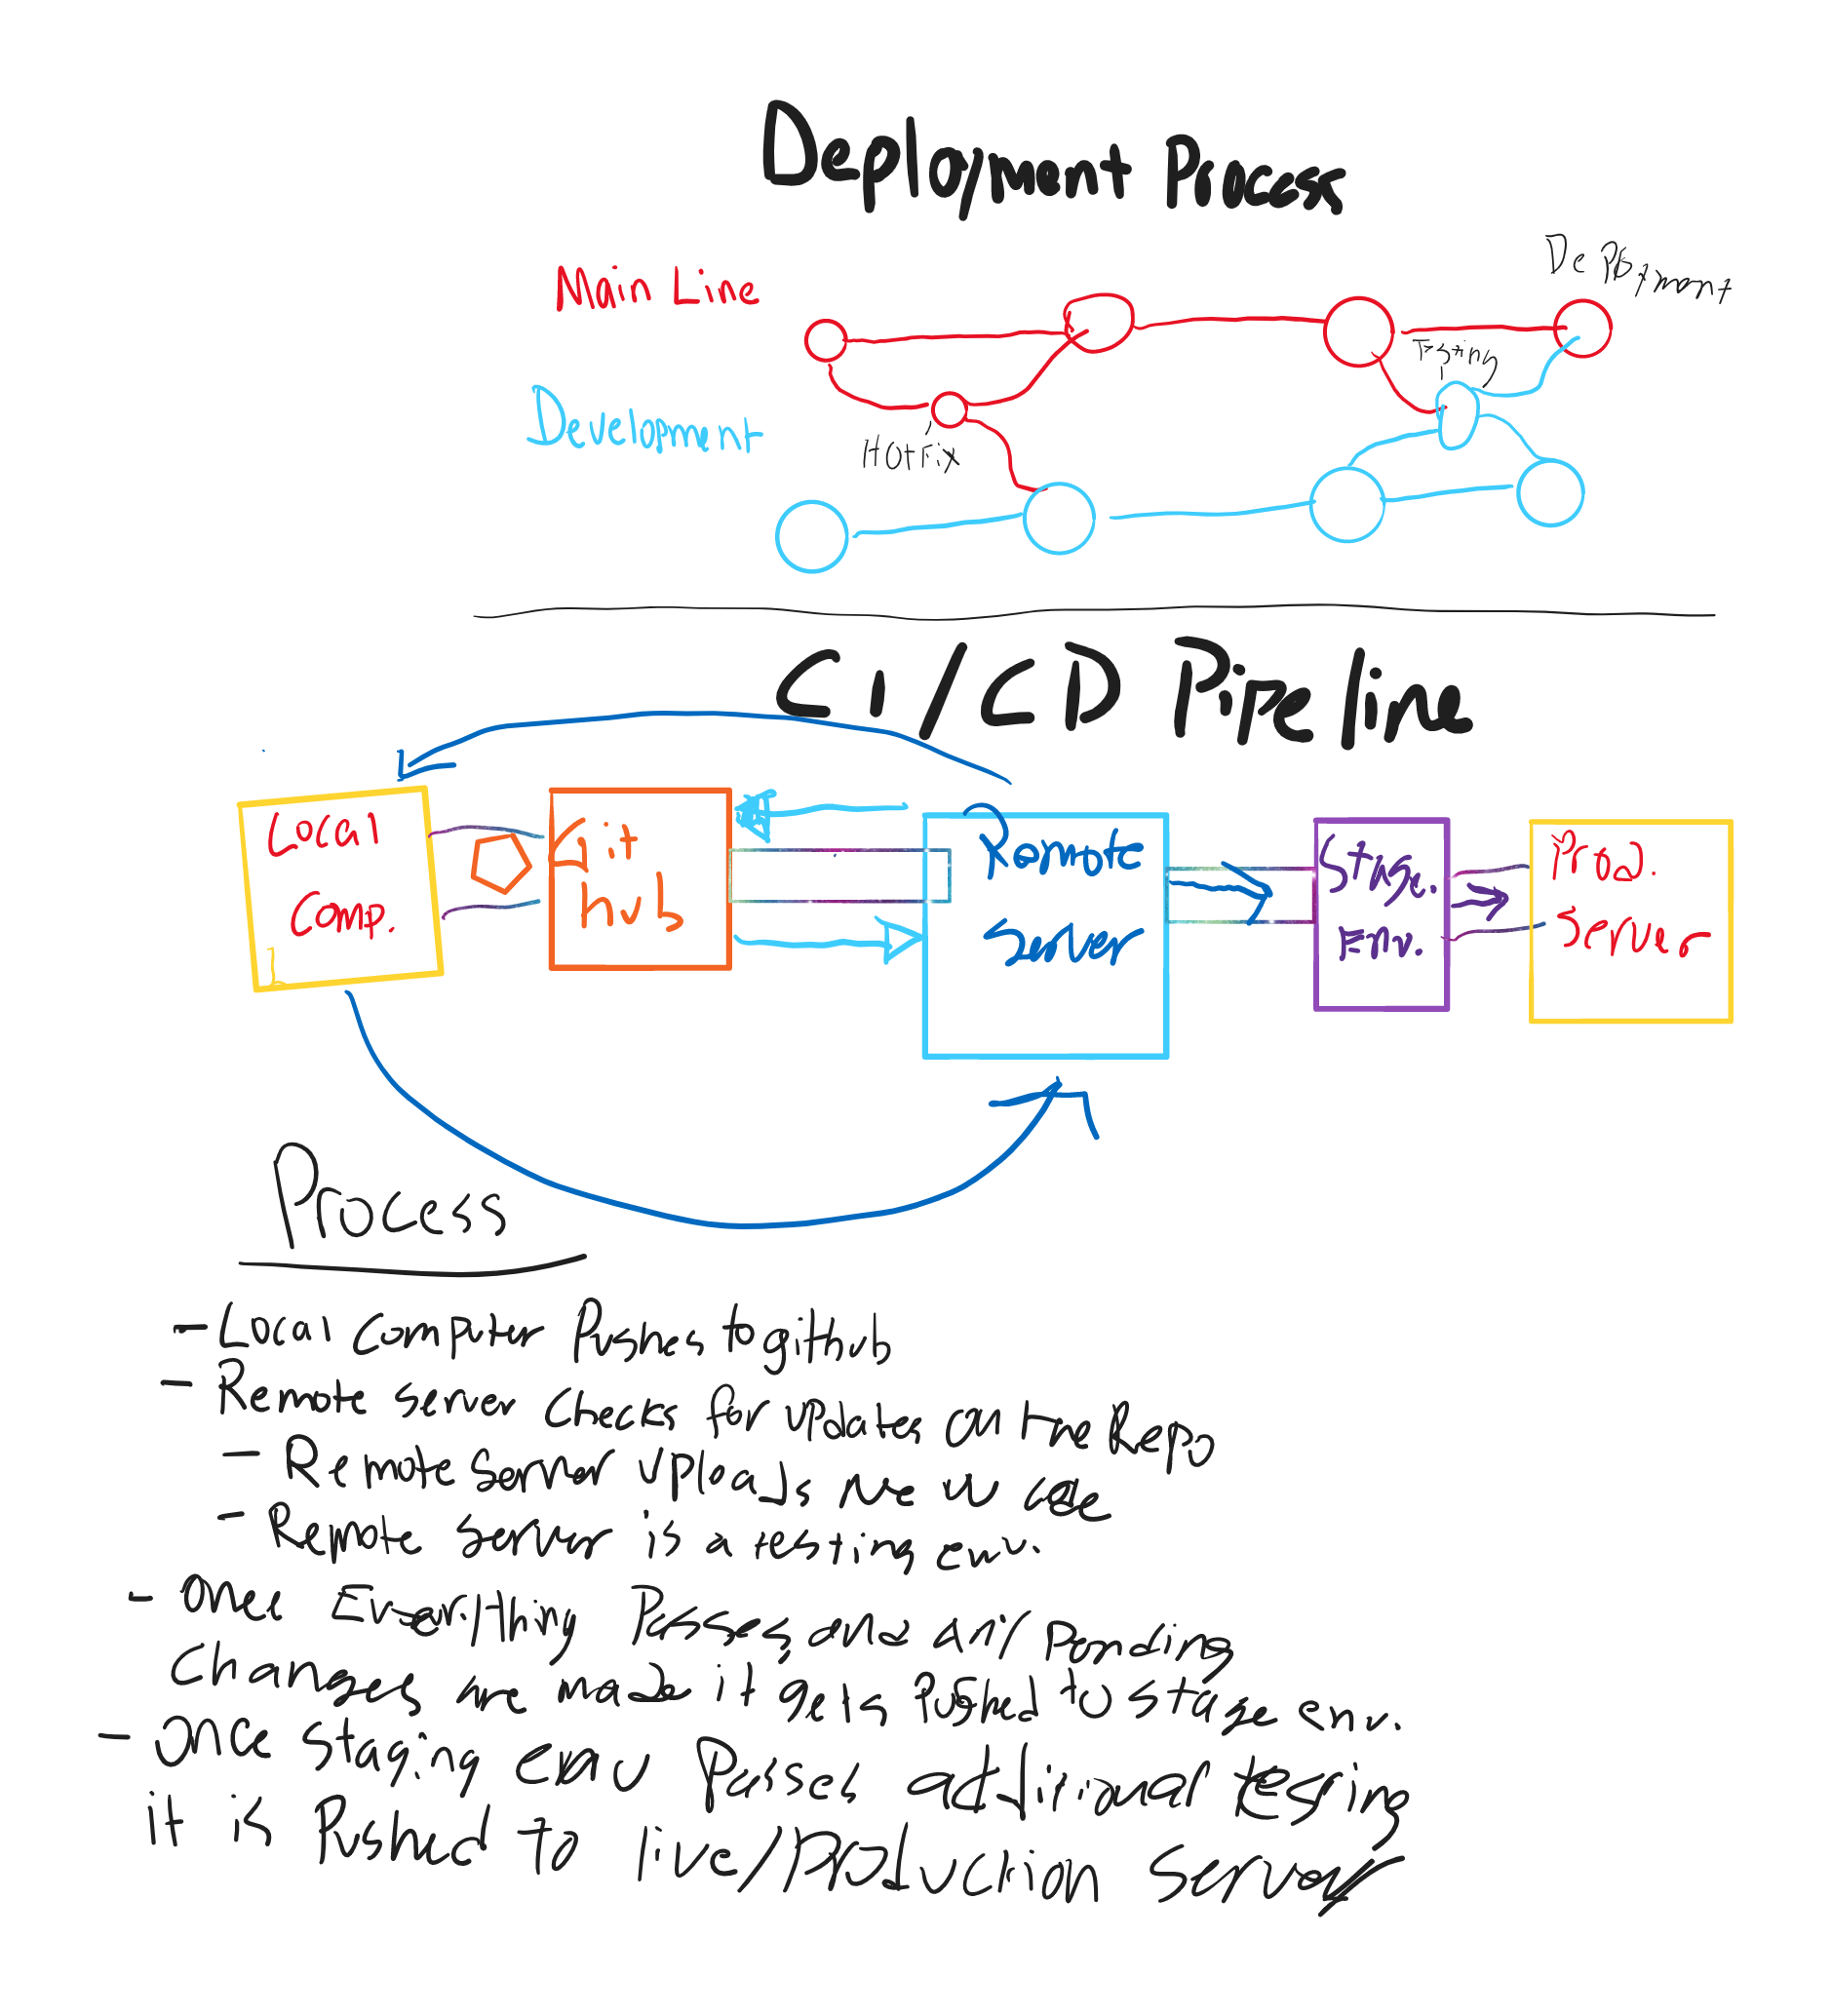 Deployment Process
Main Line
Deployment
Testing
Development
HotFix
CI/CD Pipeline
Local
Comp.
Git
hub
Remote
Server
Stage.
Env.
Prod.
Server
Process
- Local Computer Pushes to github
- Remote server checks for updates on the Repo
- Remote server uploads new code
- Remote server is a testing env.
- Once Everything Passes and any Pending
Changes are made it gets Pushed to stage env.
- Once staging env Passes additional testing
it is Pushed to live/Production server